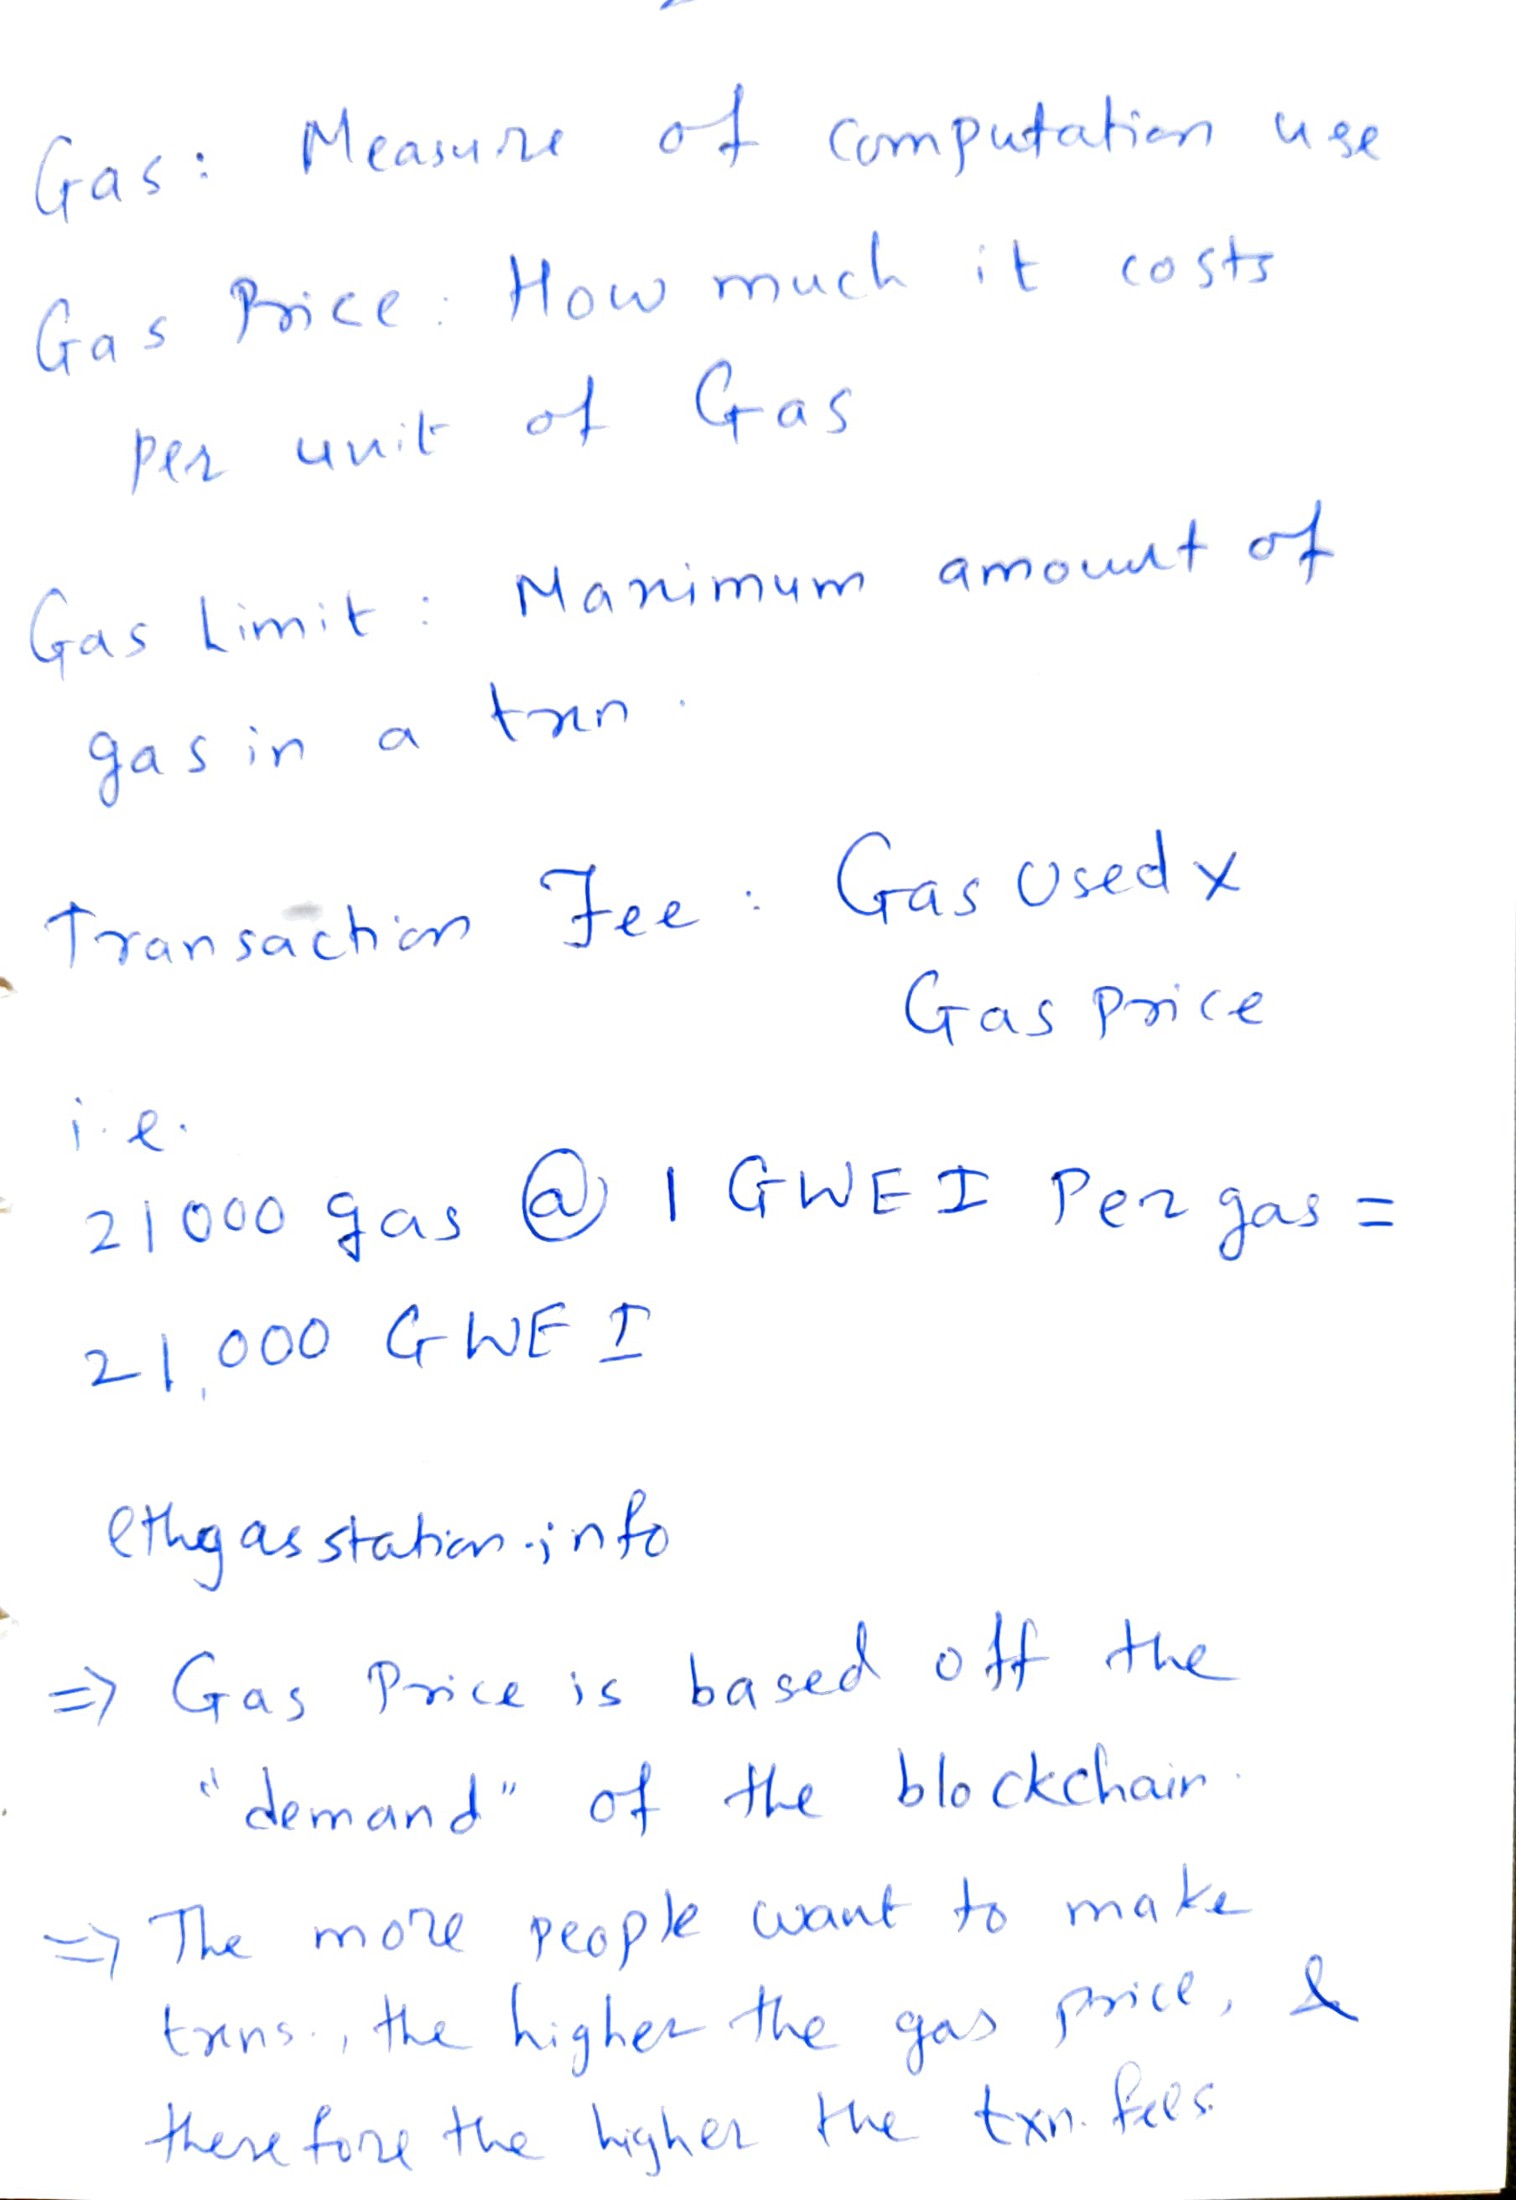 Gas: Measure of computation use
Gas Price: How much it costs
per unit of Gas
Gas Limit: Maximum amount of
gas in a txn.
Transaction Fee: Gas Used x
Gas price
i.e.
21000 gas @ 1 GWEI Per gas =
21,000 GWEI
ethgasstation.info
=> Gas Price is based off the
"demand" of the blockchain.
=> The more people want to make
txns., the higher the gas price, &
therefore the higher the txn. fees.